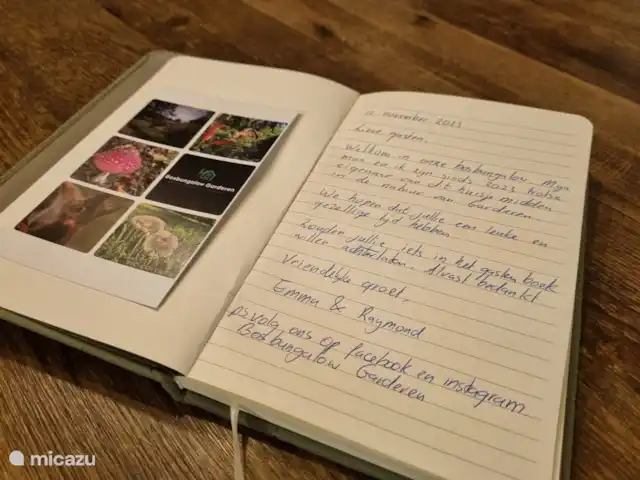 Bosbungalow Garderen
12 november 2023
Lieve gasten,
Welkom in onze bosbungalow. Mijn
man en ik zijn sinds 2023 trotse
eigenaar van dit huisje midden
in de natuur van Garderen.
We hopen dat jullie een leuke en
gezellige tijd hebben
Zouden jullie iets in het gasten boek
willen achterlaten. Alvast bedankt
Vriendelijke groet,
Emma & Raymond
PS volg ons op facebook en instagram
Bosbungalow Garderen
micazu